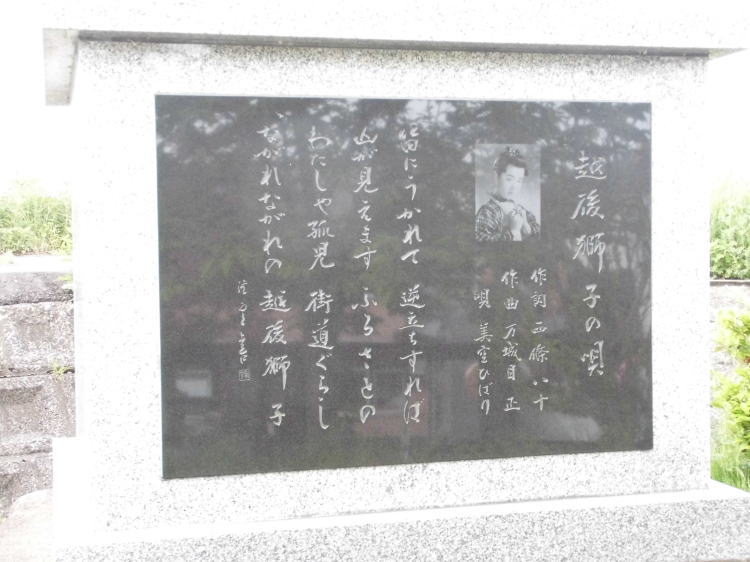 越後獅子の唄
作詞 西條 八十
作曲 万城目 正
唄 美空ひばり
笛にうかれて 逆立ちすれば
山が見えます ふるさとの
わたしゃ孤児 街道ぐらし
ながれながれの 越後獅子